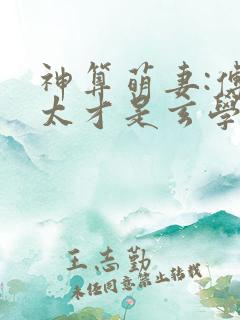 神算萌妻:傅
太才是玄學
王志勤
未经同意禁止转载